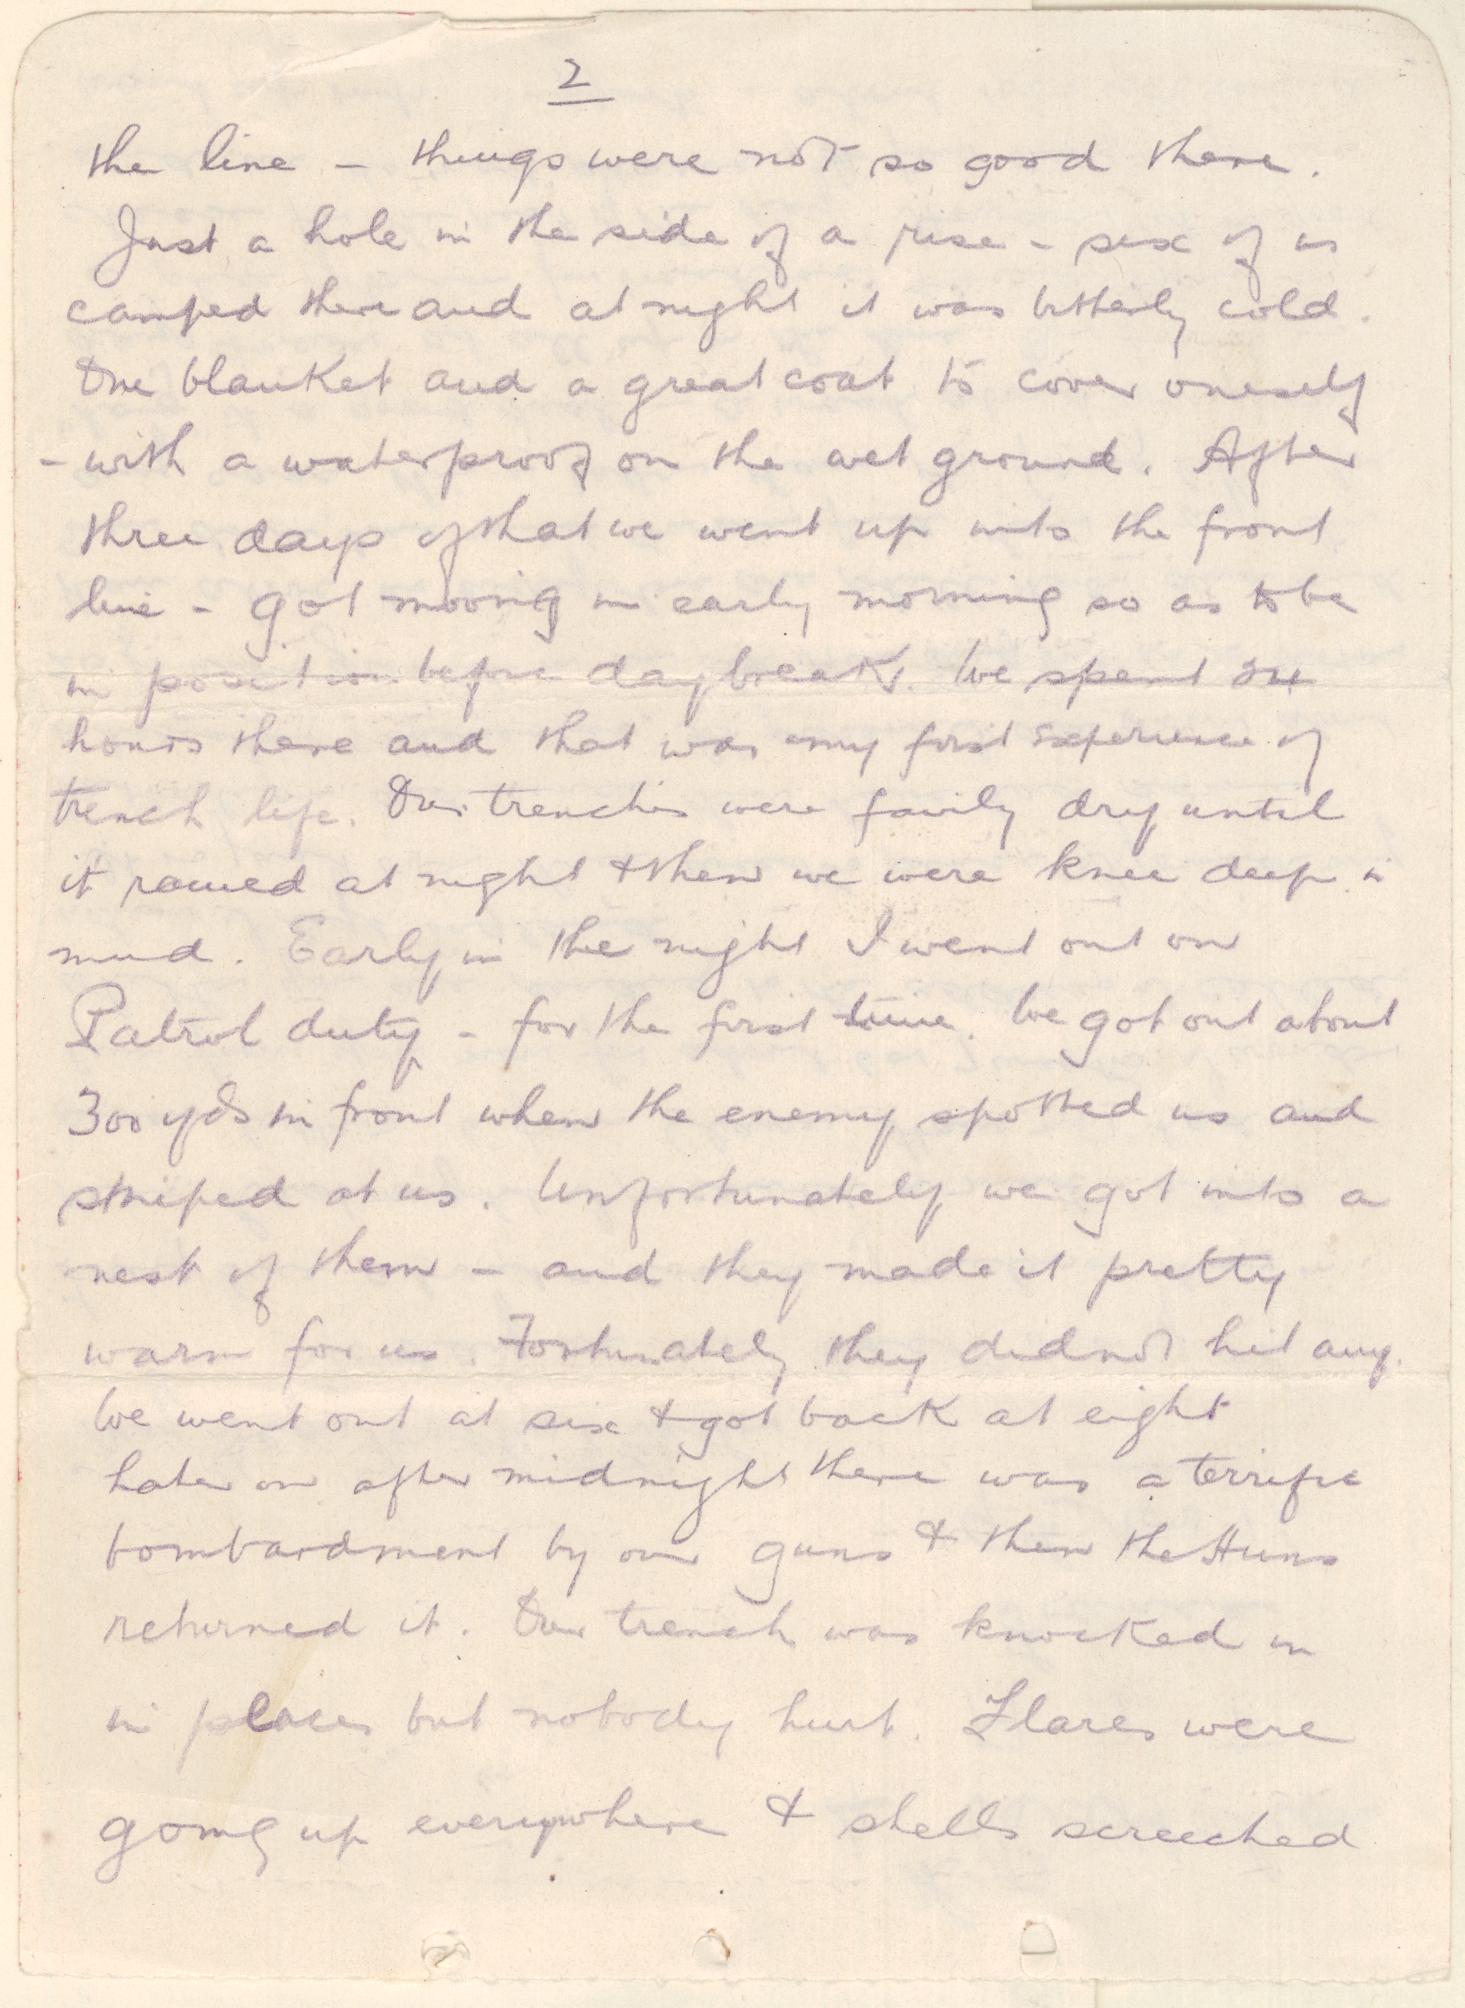 2
the line - things were not so good there.
Just a hole in the side of a rise - six of us
camped there and at night it was bitterly cold.
One blanket and a great coat to cover oneself
- with a waterproof on the wet ground. After
three days of that we went up into the front
line - got moving in early morning so as to be
in position before daybreak. We spent 24
hours there and that was my first experience of
trench life. Our trenches were fairly dry until
it rained at night & then we were knee deep in
mud. Early in the night I went out on
Patrol duty - for the first time. We got out about
300 yds in front when the enemy spotted us and
sniped at us. Unfortunately we got into a
nest of them - and they made it pretty
warm for us. Fortunately they did not hit any.
We went out at six & got back at eight
Later on after midnight there was a terrific
bombardment by our guns & then the Huns
returned it. Our trench was knocked in
in places but nobody hurt. Flares were
going up everywhere & shells screeched